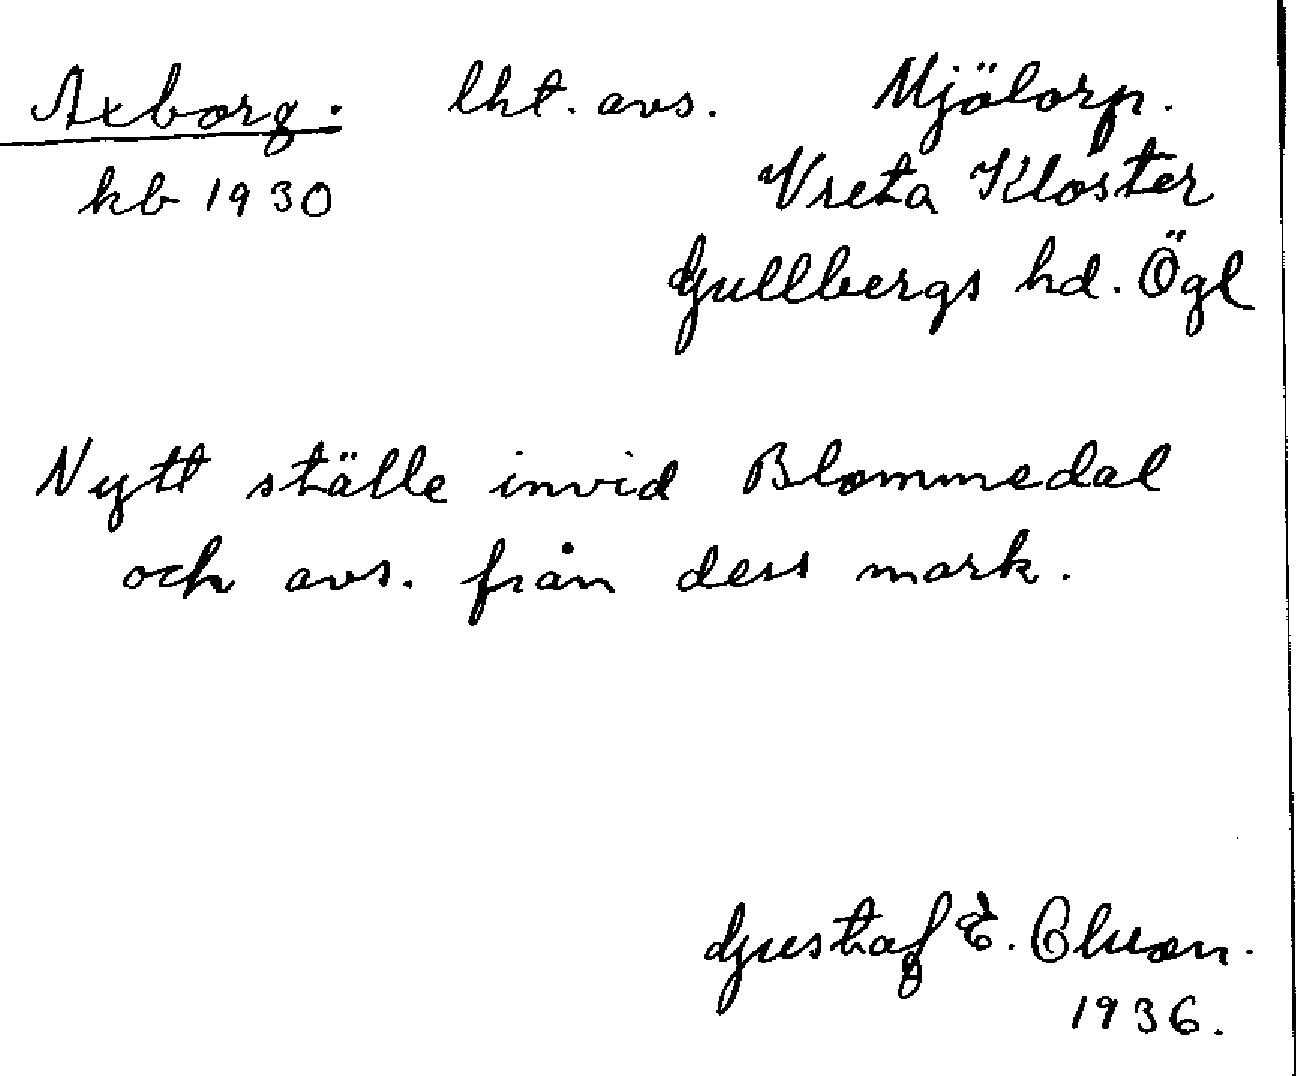 Axborg. lht. avs. Mjölorp.
kb 1930 Vreta Kloster
Gullbergs hd. Ögl
Nytt ställe invid Blommedal
och avs. från dess mark.
Gustaf E.
1936.